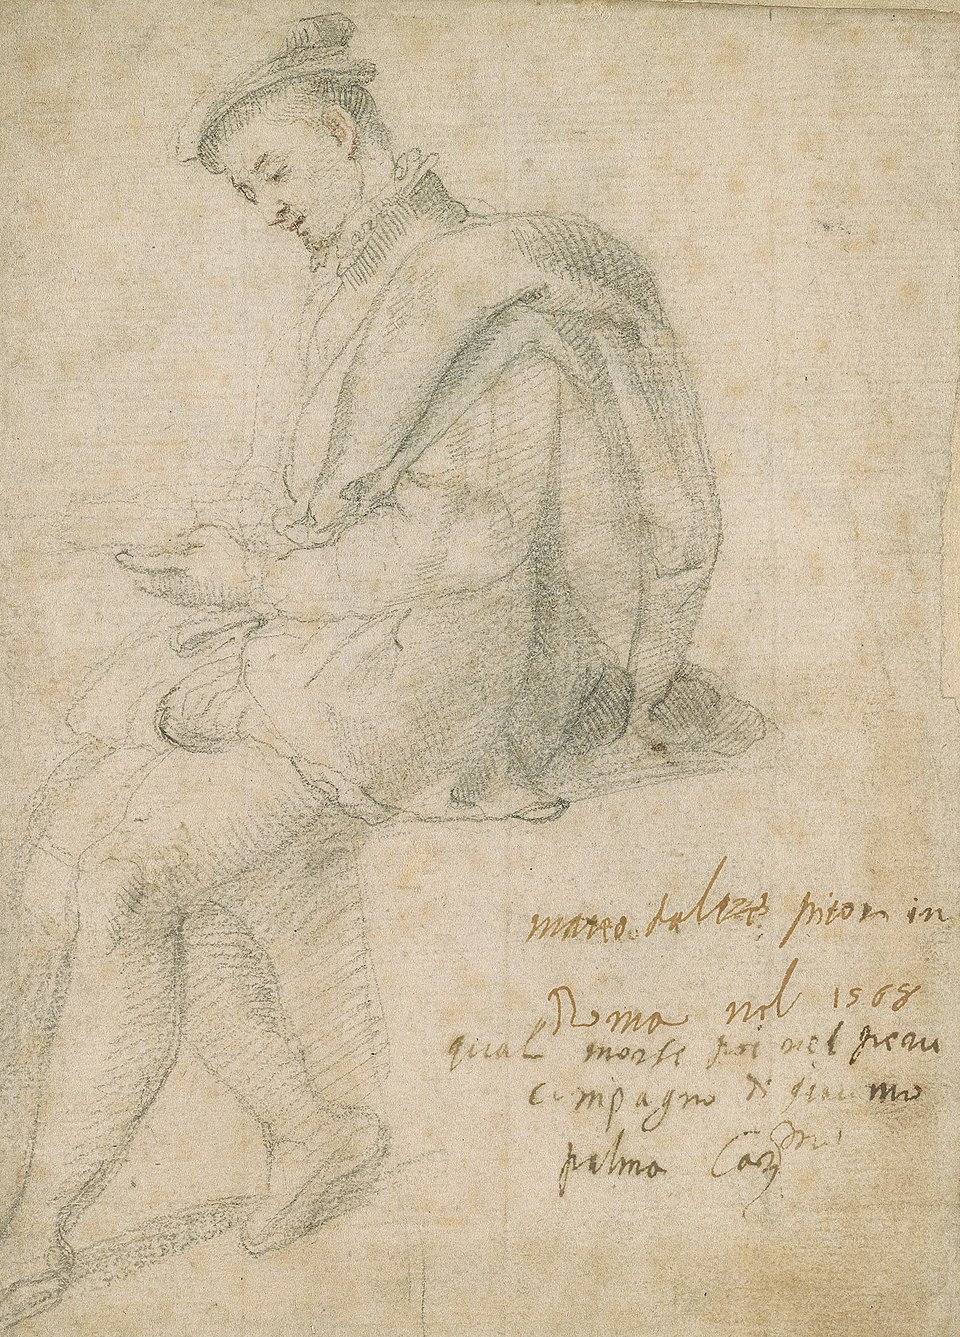 mateo. da leze pitor in
Roma nel 1568
qual morse poi nel peru
compagno di giacomo
palma